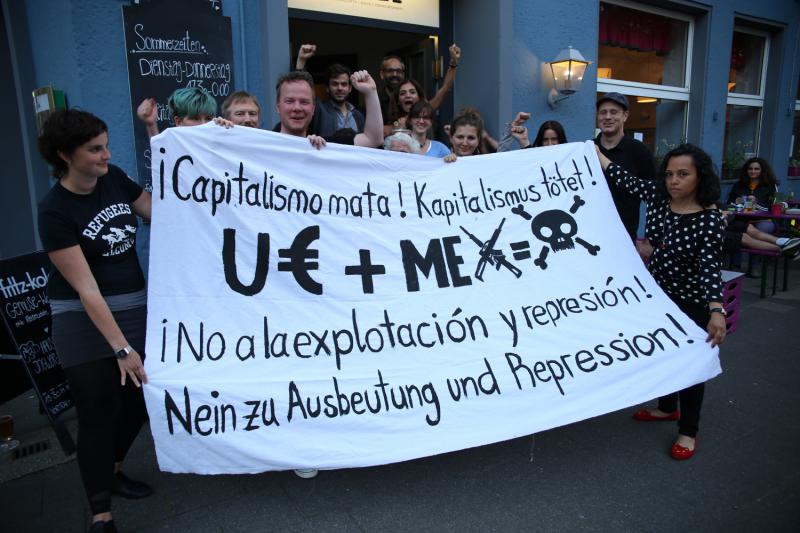 Sommerzeiten
Dienstag-Donnerstag
17.30-0.00
REFUGEES
WELCOME
fritz-kol
¡Capitalismo mata! Kapitalismus tötet!
U€ + MEX =
¡No a la explotación y represión!
Nein zu Ausbeutung und Repression!